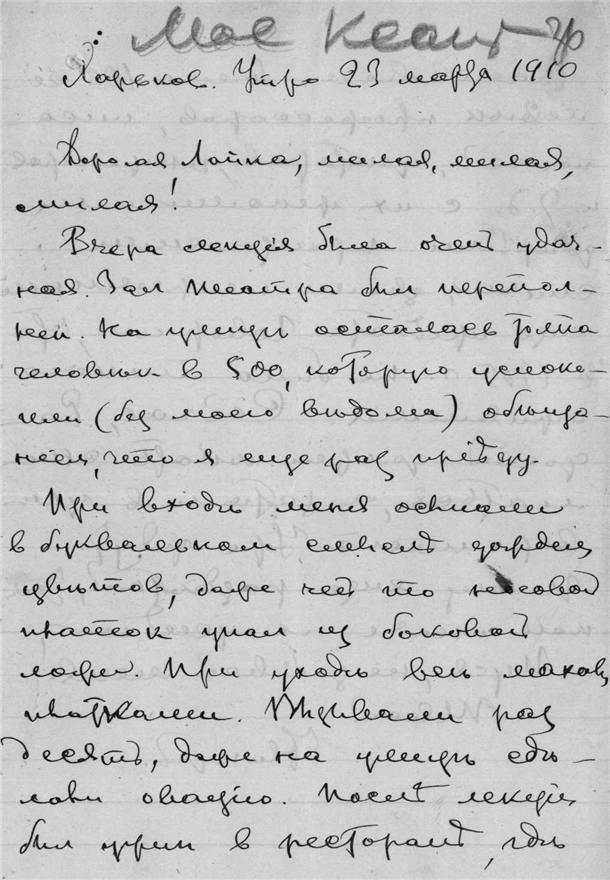 Харьков. Утро 23 марта 1910
Дорогая Лойка, милая, милая,
милая!
Вчера лекція была очень удач-
ная. Зал театра был перепол-
нен. На улице осталась толпа
человѣк в 500, которую успоко-
или (без моего вѣдома) обѣща-
ніем, что я еще раз пріѣду.
При входѣ меня осыпали
в буквальном смыслѣ дождем
цвѣтов, даже чей то носовой
платок упал из боковой
ложи. При уходѣ весь махов
платками. Вызывали раз
десять, даже на улицѣ сдѣ-
лали овацію. Послѣ лекціи
был ужин в ресторанѣ, гдѣ